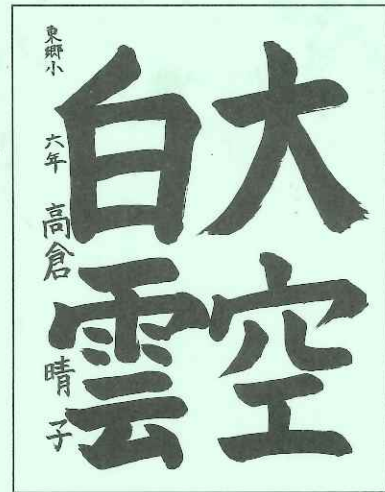 大空
白雲
東郷小 六年 高倉晴子